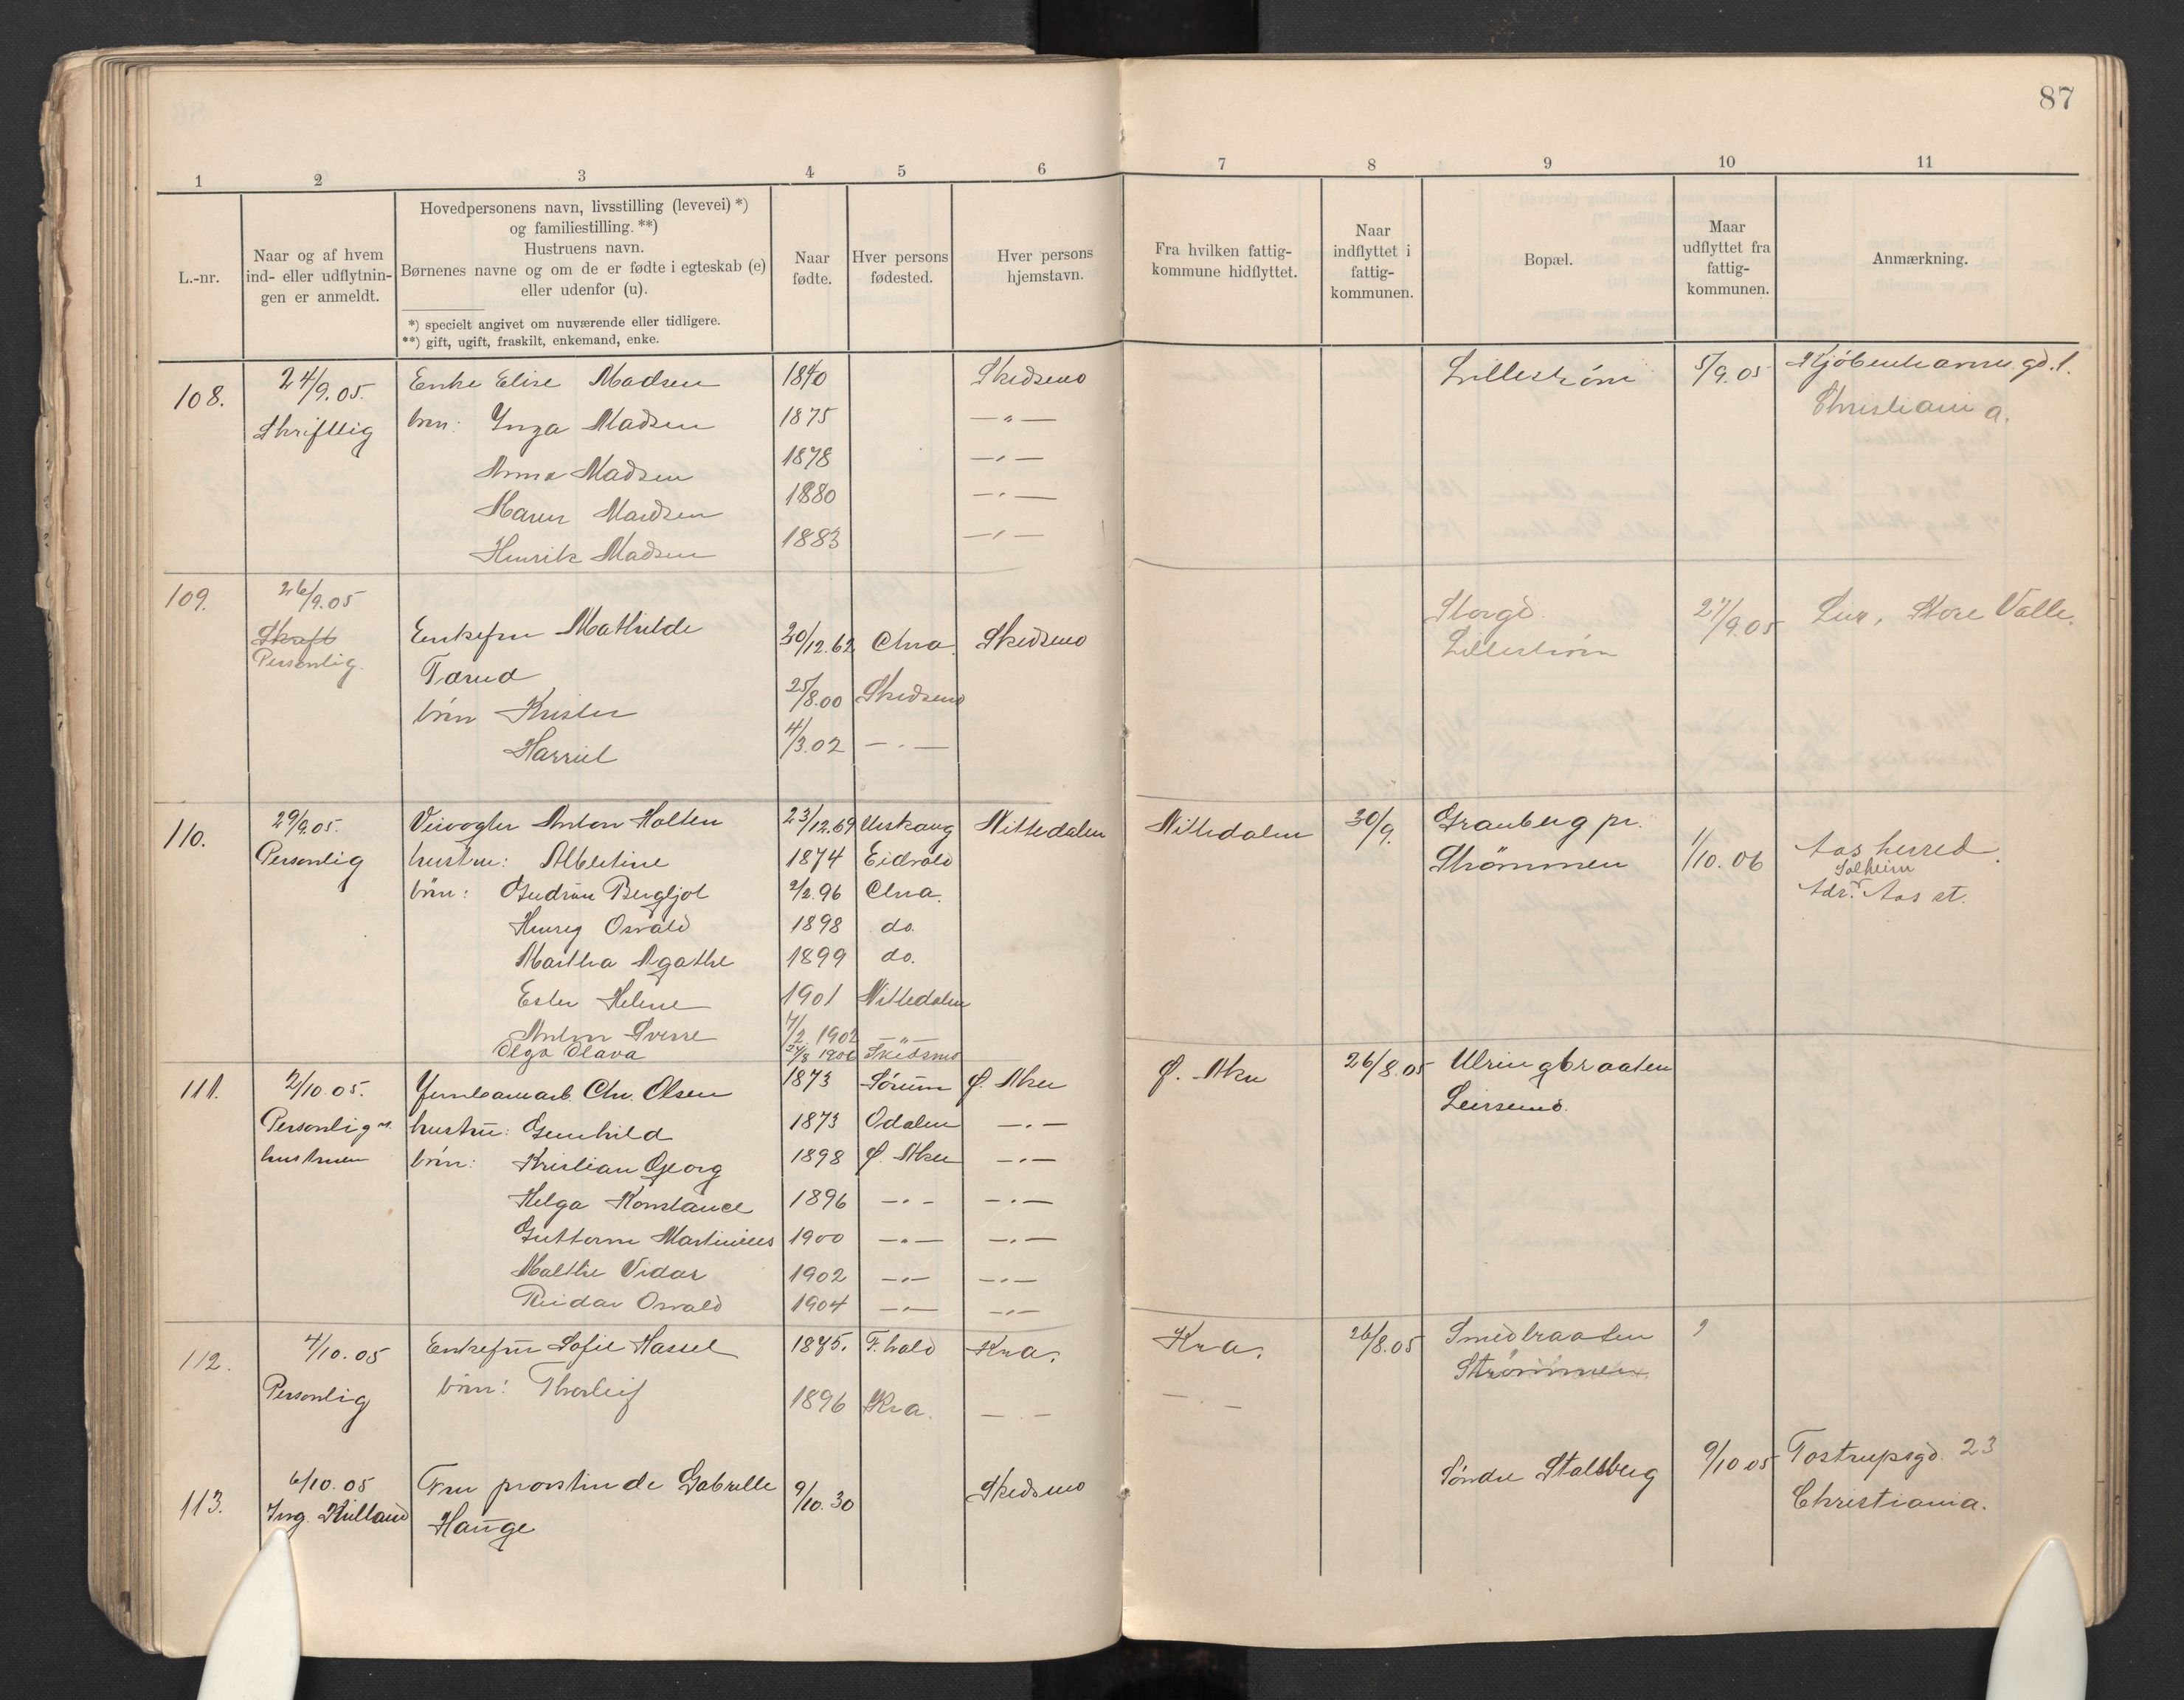 87
1 2 3 4 5 6 7 8 9 10 11
L.-nr.
Naar og af hvem
ind- eller udflytnin-
gen er anmeldt.
Hovedpersonens navn, livsstilling (levevei) *)
og familiestilling. **)
Hustruens navn.
Børnenes navne og om de er fødte i egteskab (e)
eller udenfor (u).
*) specielt angivet om nuværende eller tidligere.
**) gift, ugift, fraskilt, enkemand, enke.
Naar
fødte.
Hver persons
fødested.
Hver persons
hjemstavn.
Fra hvilken fattig-
kommune hidflyttet.
Naar
indflyttet i
fattig-
kommunen.
Bopæl.
Maar
udflyttet fra
fattig-
kommunen.
Anmærkning.
108. 24/9.05. Enke Elise Madsen 1840 Skedsmo Lillestrøm 5/9.05 Kjøbenhavnsgd. 1.
Skriftlig børn: Inga Madsen 1875 — " — Christiania.
Anna Madsen 1878 — " —
Karen Madsen 1880 — " —
Henrik Madsen 1883 — " —
109. 26/9.05 Storgd. 27/9.05 Lur, Store Valle.
Skrift Enkefru Mathilde 30/12.62 Chra. Skedsmo Lillestrøm
Personlig. Tærud
børn Krister 25/8.00 Skedsmo
Harriet 4/3.02 — " —
110. 29/9.05. Veivogter Anton Holten 23/12.69 Urskaug Nittedalen Nittedalen 30/9. Granberg pr.
Personlig hustru: Albertine 1874 Eidvold Strømmen 1/10.06 Aas herred.
Solheim
børn: Gudrun Bergljot 2/2.96 Chra. Adr. Aas st.
Henry Osvald 1898 do.
Martha Agathe 1899 do.
Ester Helene 1901 Nittedalen
Anton Sverre 7/2 1902 — " —
Olga Olava 24/8 1906 Skedsmo
111. 2/10.05. Jernbanearb. Chr. Olsen 1873 Sørum Ø. Aker Ø. Aker 26/8.05 Ulringbraaten
Personlig v. hustru: Gunhild 1873 Odalen — " — Leirsund.
hustruen børn: Kristian Georg 1898 Ø. Aker — " —
Helga Konstance 1896 — " — — " —
Guttorm Martinius 1900 — " — — " —
Malthe Vidar 1902 — " — — " —
Reidar Osvald 1904 — " — — " —
112. 4/10.05 Enkefru Sofie Hassel 1875. F.hald Kra. Kra. 26/8.05 Smedbraaten ?
Personlig børn: Thorleif 1896 Kra. — " — — " — Strømmen
113. 6/10.05 Fru provstinde Gabrielle 9/10.30 Skedsmo Søndre Stalsberg 9/10 05 Tostrupsgd. 23
Ing. Kielland Hauge Christiania.